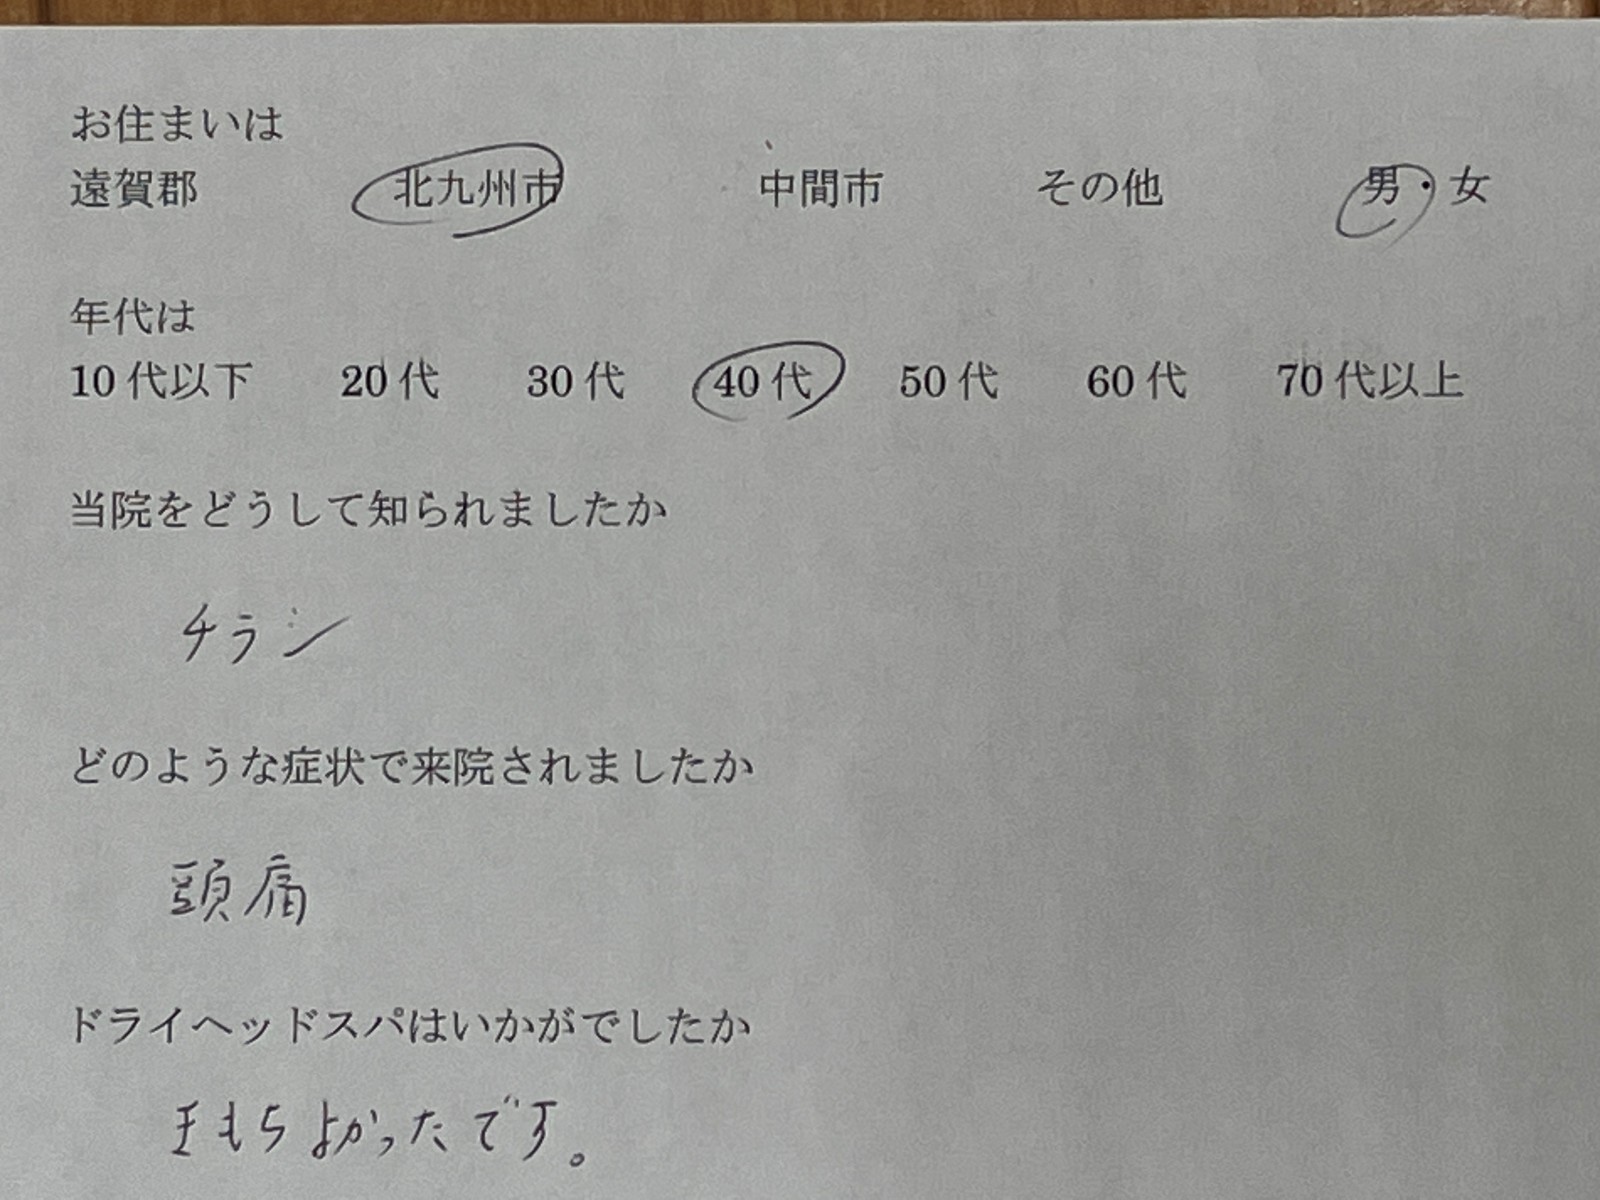 お住まいは
遠賀郡 北九州市 中間市 その他 男・女
年代は
10代以下 20代 30代 40代 50代 60代 70代以上
当院をどうして知られましたか
チラシ
どのような症状で来院されましたか
頭痛
ドライヘッドスパはいかがでしたか
きもちよかったです。